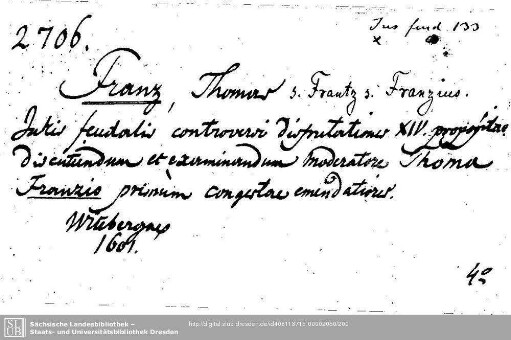 2706.
Jus feud 133
x
Franz, Thomas s. Frantz s. Franzius.
Juris feudalis controversi disputationes XIV. propositae
discutiendum et examinandum moderatore Thoma
Franzio primùm congestae emendatiores.
Witebergae
1601.
4°
SLUB
Sächsische Landesbibliothek –
Staats- und Universitätsbibliothek Dresden